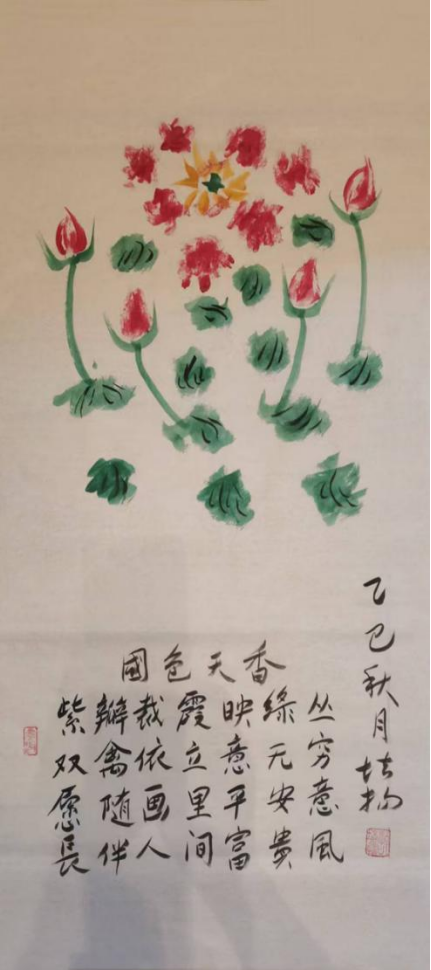 國色天香
紫瓣裁霞映綠丛
双禽依立意无穷
愿随画里平安意
長伴人间富貴風
乙巳秋月